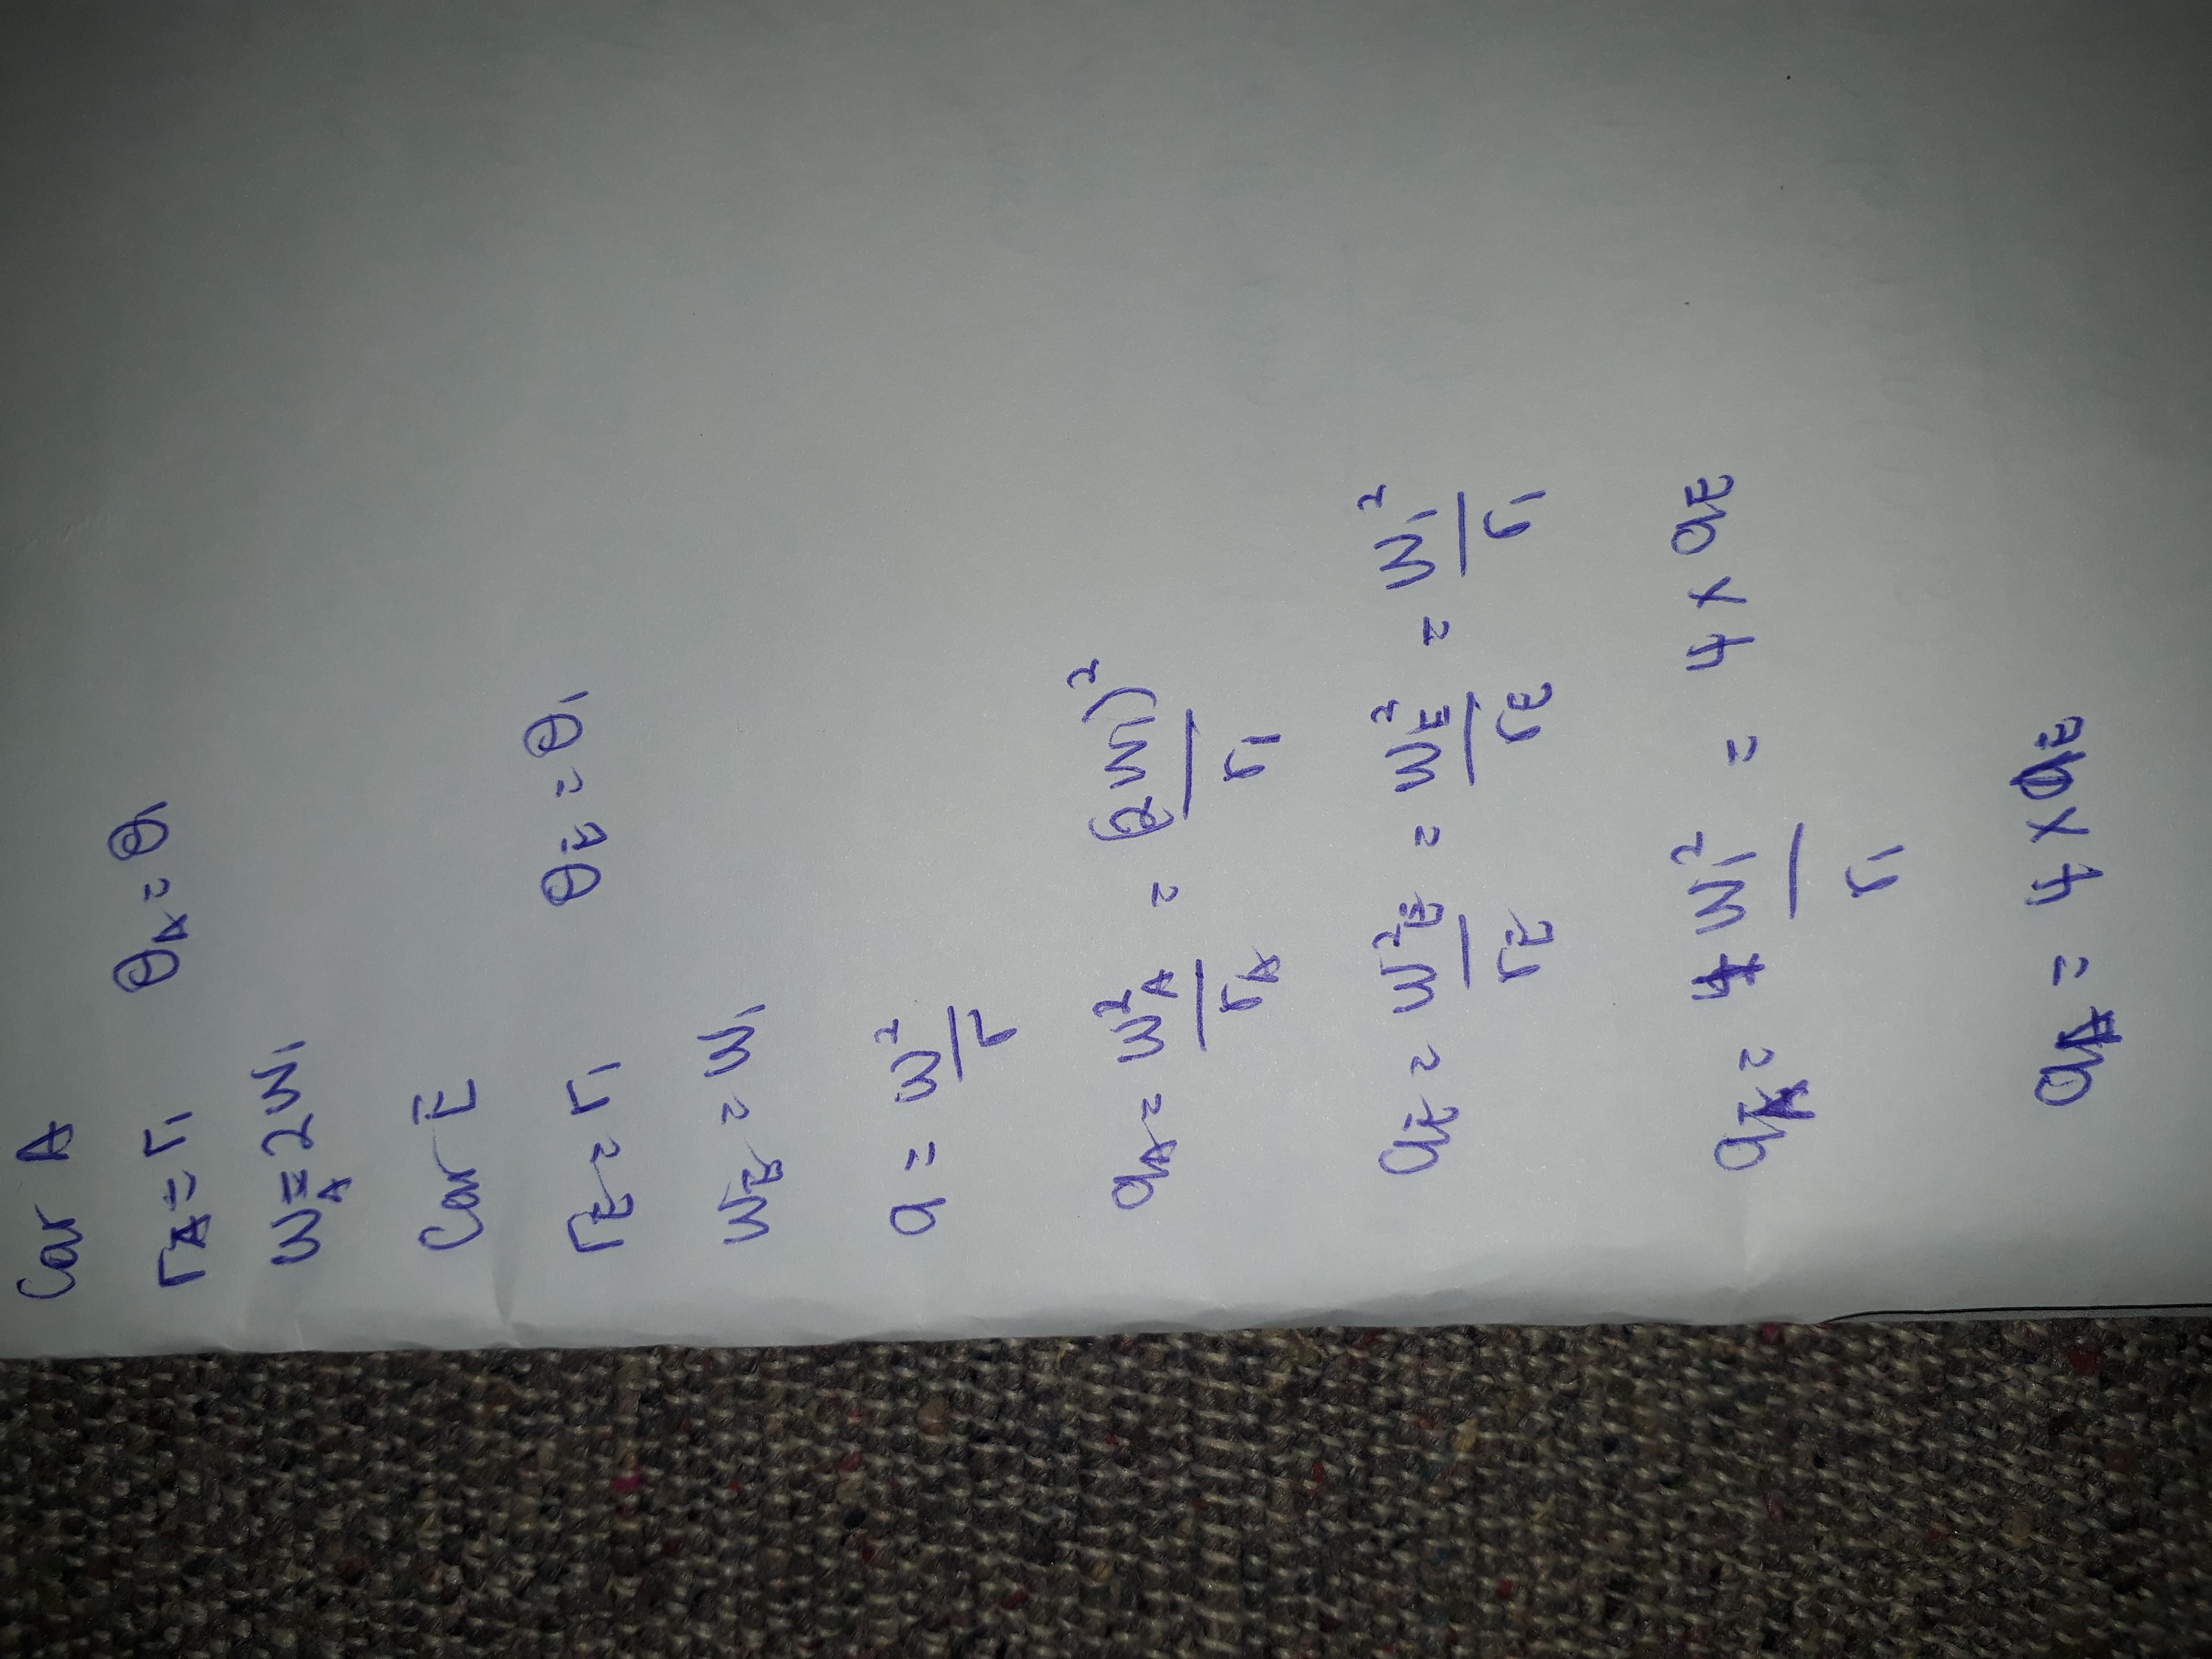 Car A
r_A = r_1 θ_A = θ_1
w_A = 2w_1
Car E
r_E = r_1 θ_E = θ_1
w_E = w_1
a = w²/r
a_A = w²_A/r_A = (2w_1)²/r_1
a_E = w²_E/r_E = w_E²/r_E = w_1²/r_1
a_A = 4w_1²/r_1 = 4 x a_E
a_A = 4 x a_E